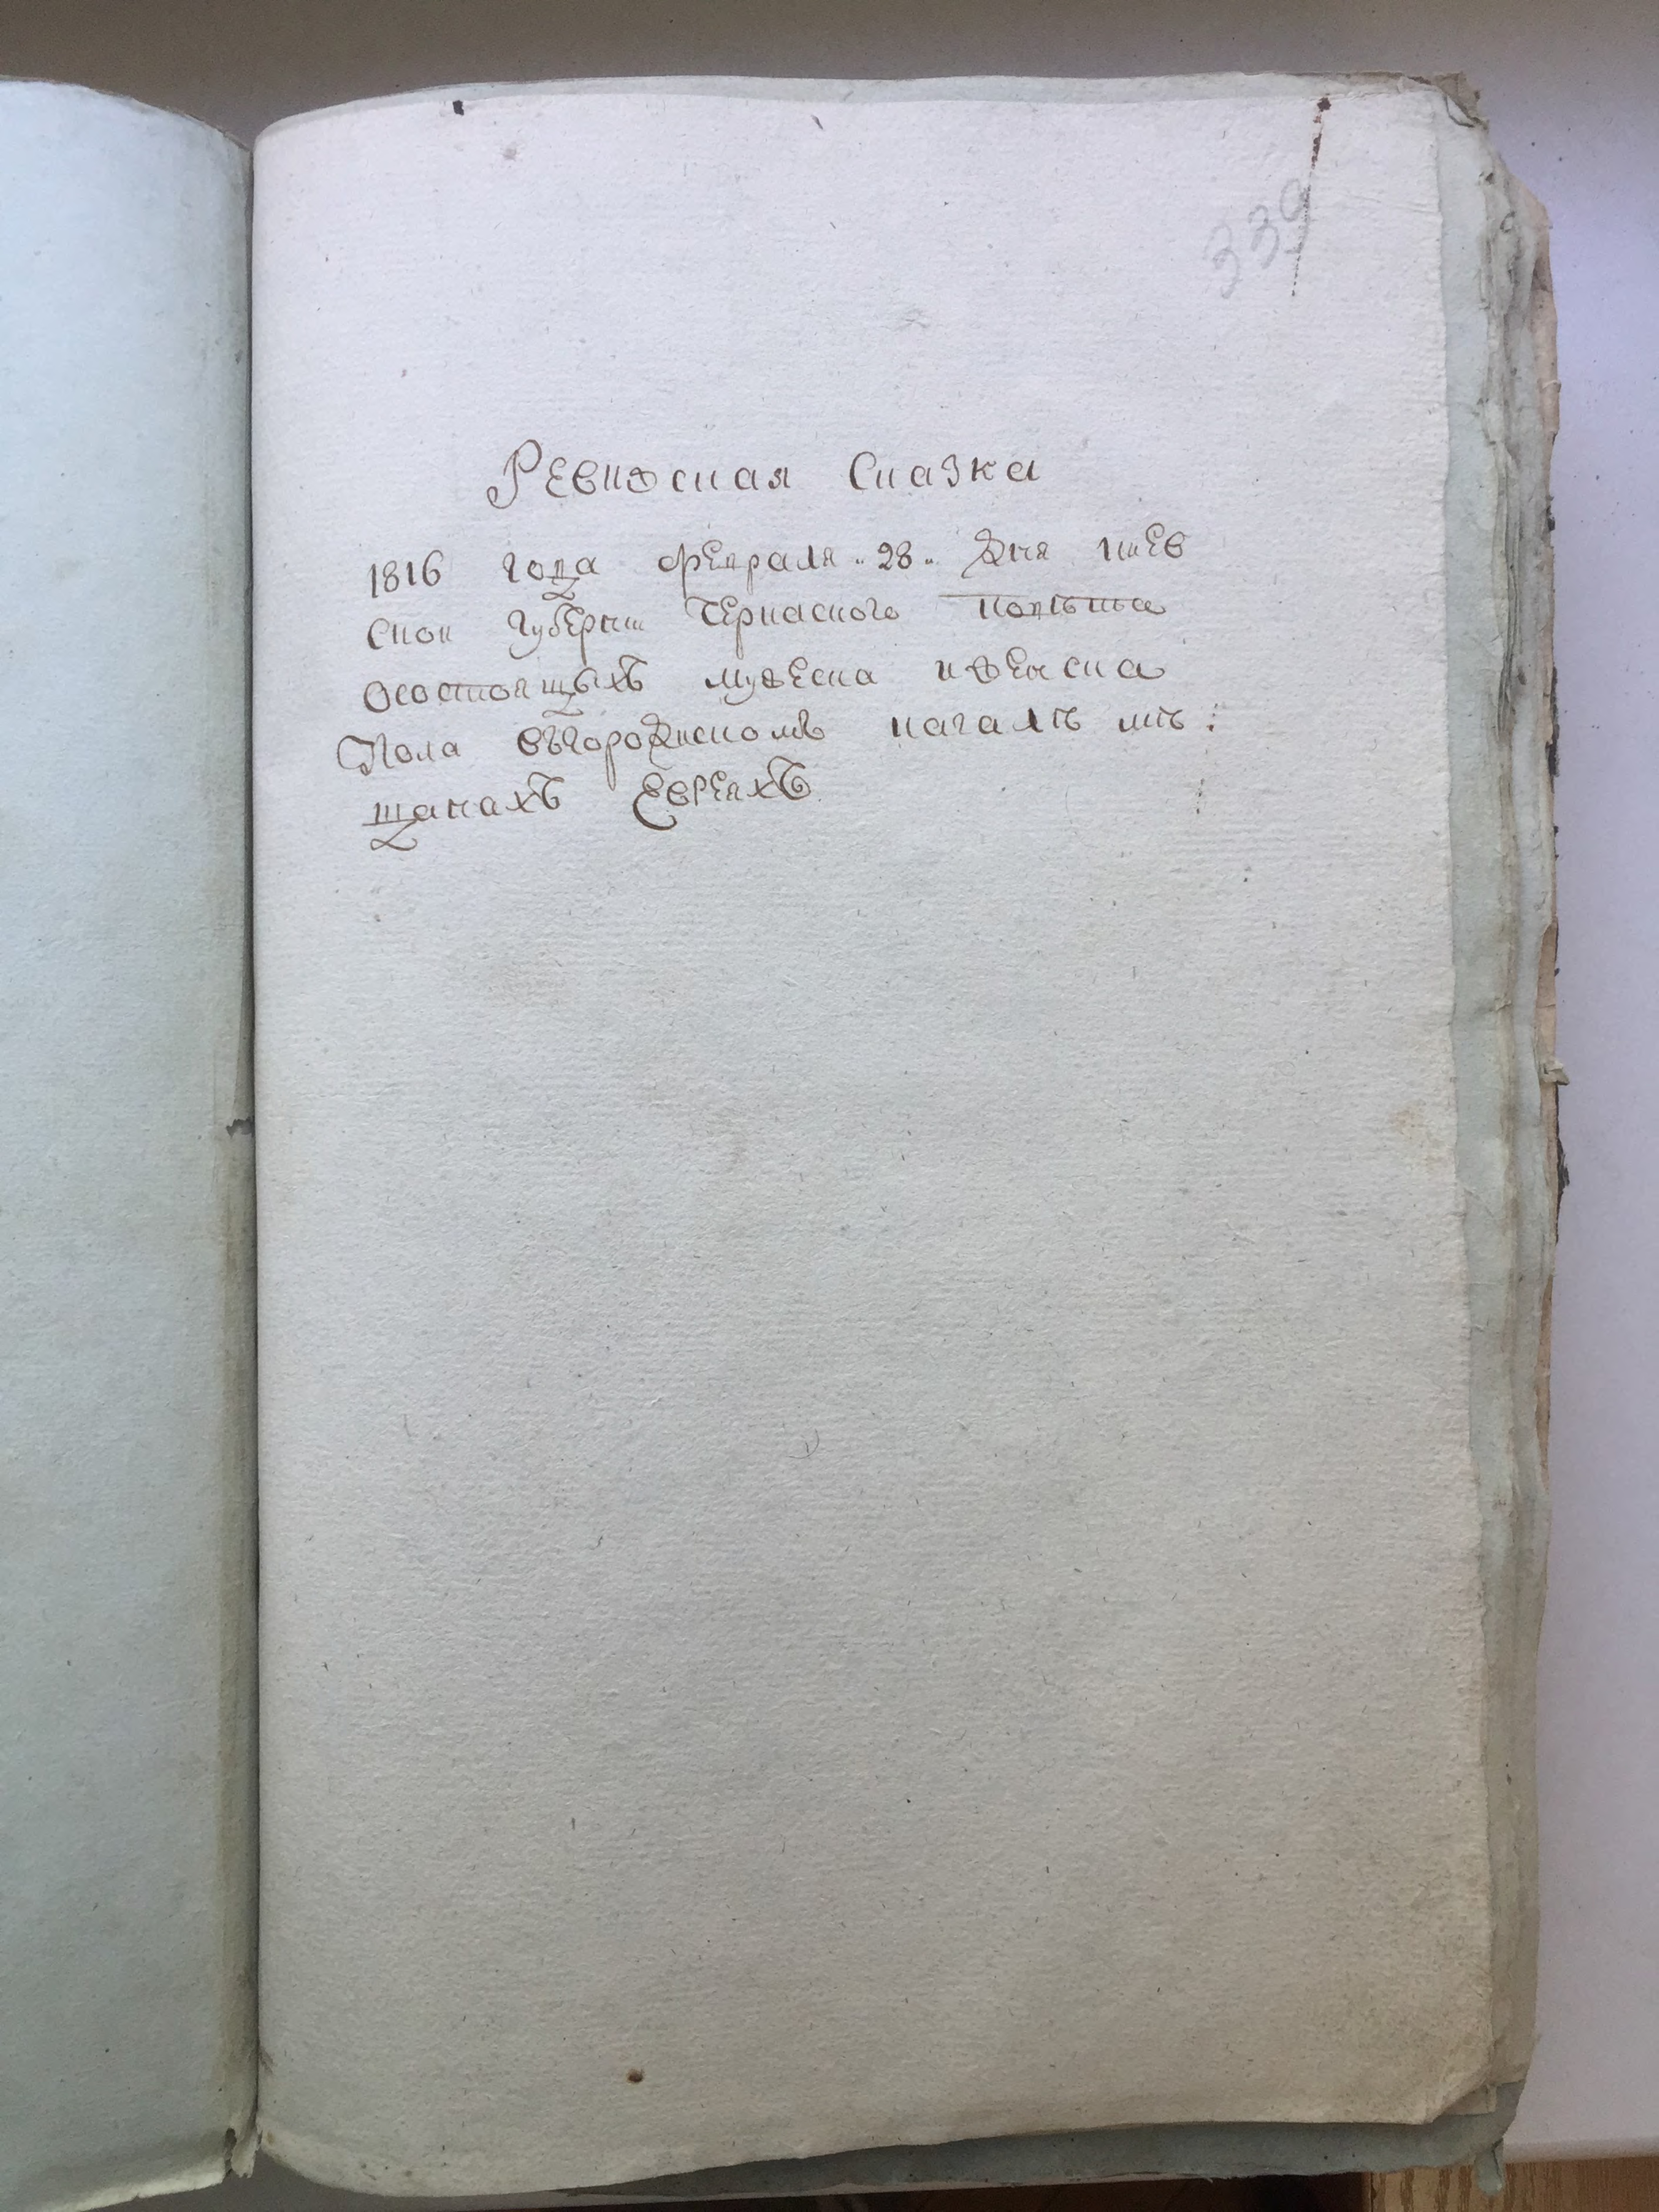 339
Ревизская Сказка
1816 года февраля „28„ Дня Киев
ской губернии Черкаского повѣта
Осостоящыхъ мужеска иженска
Пола въгородиском кагалѣ мѣ:
щанахъ Евреяхъ